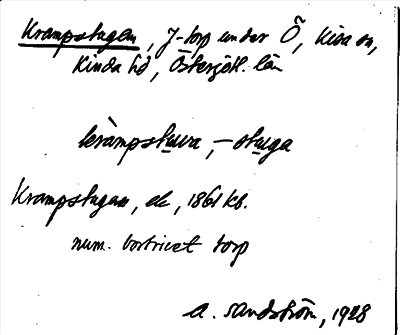 Krampstugan, J-torp under Ö, Kisa sn,
Kinda hd, Östergötl. län
kràmpstuva, -stuga
Krampstugan, ek, 1861 kb.
num. bortrivet torp
A. Sandström, 1928